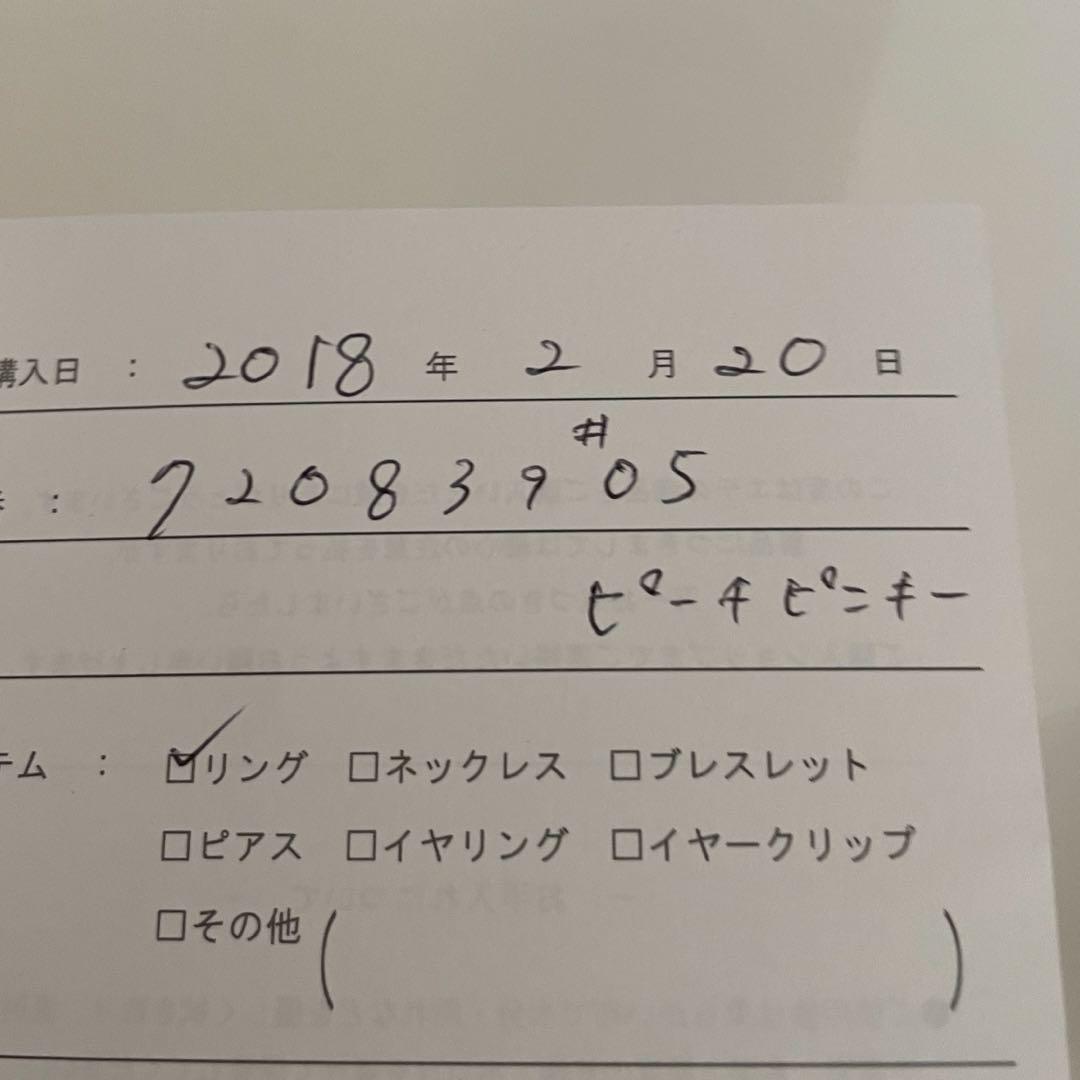 購入日 : 2018 年 2 月 20 日
: 720839 #05
ピーチピンキー
テム : ☑リング □ネックレス □ブレスレット
□ピアス □イヤリング □イヤークリップ
□その他 ( )